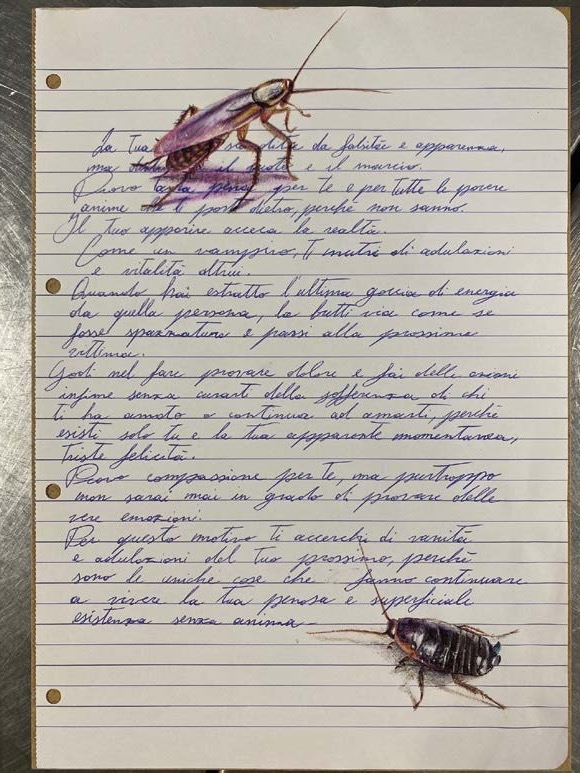 La tua vestita da falsità e apparenza,
ma dentro il vuoto e il marcio.
Provo tanta pena per te e per tutte le povere
anime che ti porti dietro, perché non sanno.
Il tuo apparire acceca la realtà.
Come un vampiro, ti nutri di adulazioni
e vitalità altrui.
Quando hai estratto l'ultima goccia di energia
da quella persona, la butti via come se
fosse spazzatura e passi alla prossima
vittima.
Godi nel fare provare dolore e fai delle azioni
infime senza curarti della sofferenza di chi
ti ha amato o continua ad amarti, perché
esisti solo tu e la tua apparente momentanea,
triste felicità.
Provo compassione per te, ma purtroppo
non sarai mai in grado di provare delle
vere emozioni.
Per questo motivo ti accerchi di vanità
e adulazioni del tuo prossimo, perché
sono le uniche cose che fanno continuare
a vivere la tua penosa e superficiale
esistenza senza anima